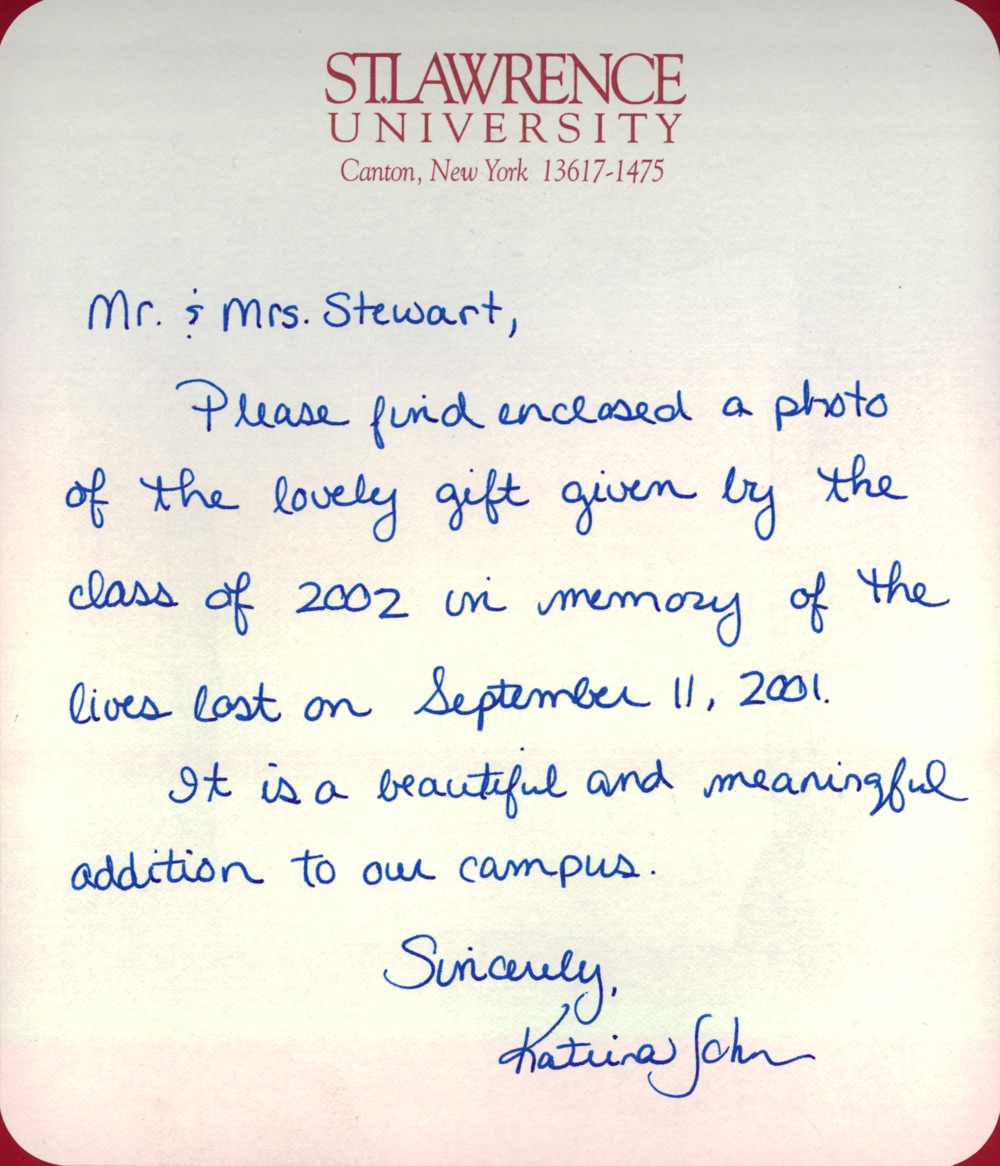 ST. LAWRENCE
UNIVERSITY
Canton, New York 13617-1475
Mr. & Mrs. Stewart,
Please find enclosed a photo
of the lovely gift given by the
class of 2002 in memory of the
lives lost on September 11, 2001.
It is a beautiful and meaningful
addition to our campus.
Sincerely,
Katrina John